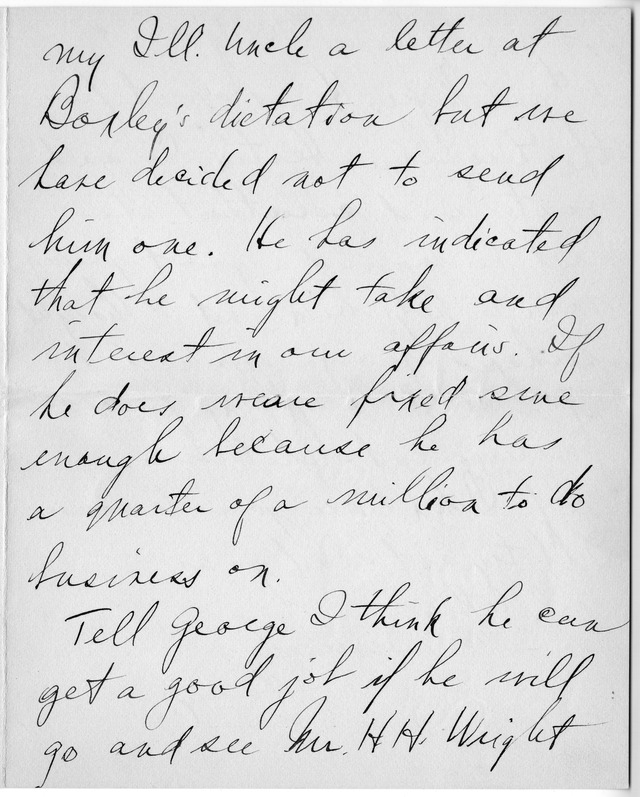 my Ill. Uncle a letter at
Boxley's dictation but we
have decided not to send
him one. He has indicated
that he might take and
interest in our affairs. If
he does weare fixed sure
enough because he has
a quarter of a million to do
business on.
Tell George I think he can
get a good job if he will
go and see Mr. H H. Wright